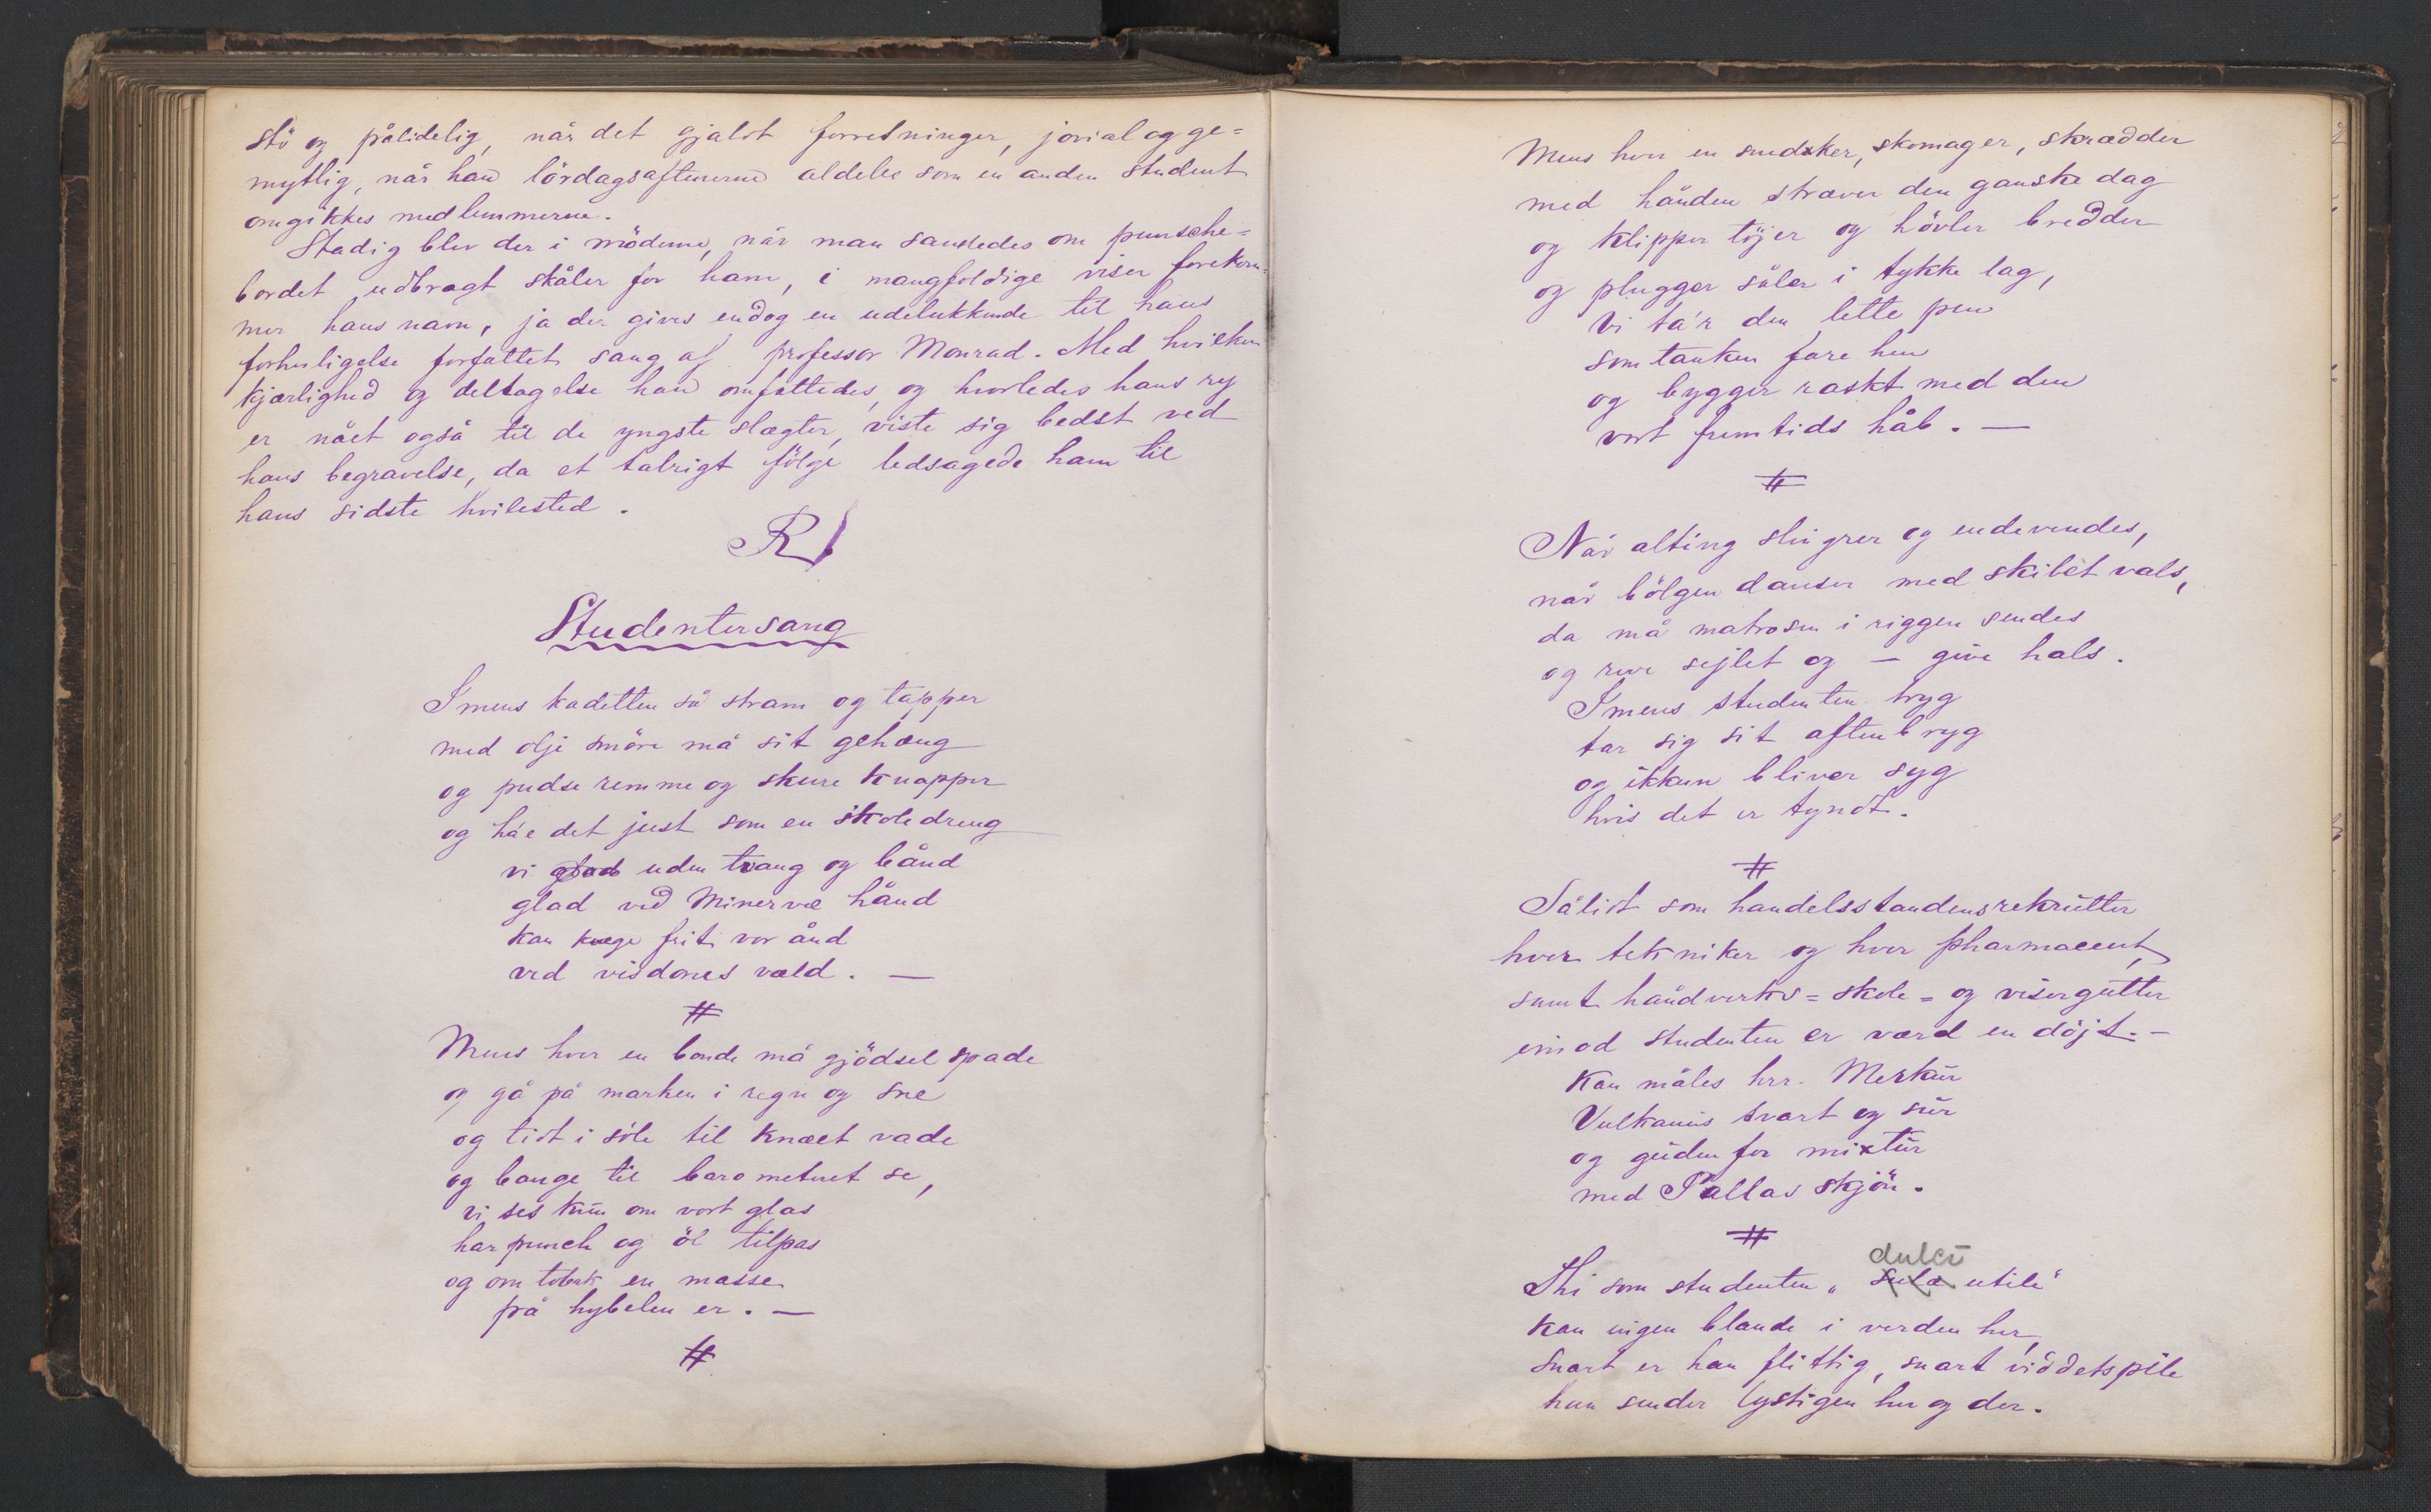 stö og pålidelig, når det gjaldt forretninger, jovial og ge=
mytlig, når han lördagsaftenerne aldeles som en anden student
omgikkes medlemmerne.
Stadig blev der i möderne, når man samledes om punsche=
bordet udbragt skåler for ham, i mangfoldige viser forekom=
mer hans navn, ja der gives endog en udelukkende til hans
forherligelse forfattet sang af professor Monrad. Med hvilken
kjærlighed og deltagelse han omfattedes, og hvorledes hans ry
er nået også til de yngste slægter, viste sig bedst ved
hans begravelse, da et talrigt følge ledsagede ham til
hans sidste hvilested.
R
Studentersang
Imens kadetten så stram og tapper
med olje smöre må sit gehæng
og pudse remme og skure knapper
og ha'e det just som en skoledreng
vi uden tvang og bånd
glad ved Minervæ hånd
kan kvæge frit vor ånd
ved visdoms væld. —
#
Mens hver en bonde må gjödsel spade
og gå på marken i regn og sne
og tidt i söle til knæet vade
og bange til barometret se,
vi ses kun om vort glas
har punch og öl tilpas
og om tobak en masse
på hybelen er. —
#
Mens hver en snedker, skomager, skrædder
med hånden stræver den ganske dag
og klipper töjer og hövler bredder
og plugger såler i tykke lag,
vi ta'r den lette pen
som tanken fare hen
og bygger raskt med den
vort fremtids håb. —
#
Når alting slingrer og endevendes,
når bölgen danser med skibet vals,
da må matrosen i riggen sendes
og reve sejlet og — give hals.
Imens studenten tryg
tar sig sit aftenbryg
og ikkun bliver syg
hvis det er tyndt.
#
Sålidt som handelsstandens rekrutter
hver tekniker og hver pharmaceut,
samt håndverks= skole= og visergutter
imod studenten er værd en döjt. —
Kan måles hrr. Merkur
Vulkanus svart og sur
og guden for mixtur
med Pallas skjön.
#
dulci
Thi som studenten „ utile"
kan ingen blande i verden her,
snart er han flittig, snart viddets pile
han sender lystigen her og der.